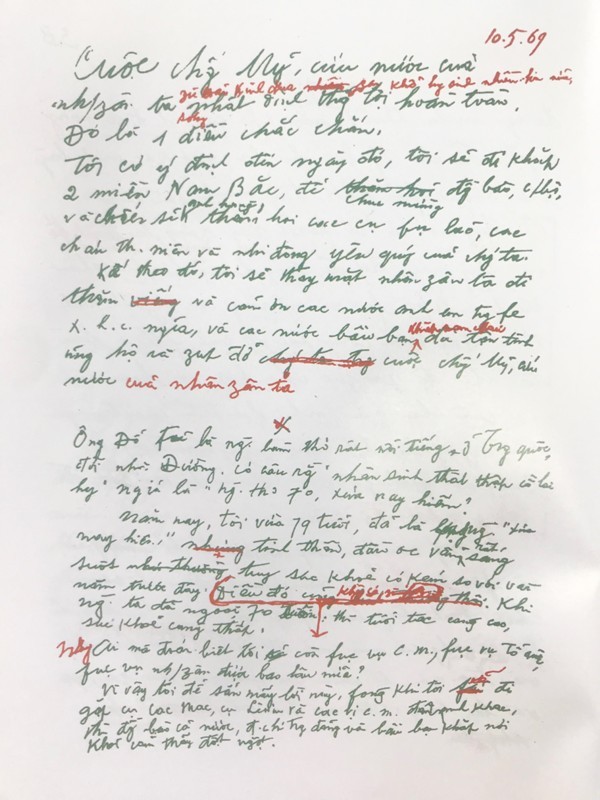 10.5.69
Cuộc chố Mỹ, cứu nước của
zù fải kinh qua khổ, hy sinh nhiều hơn nữa,
nh/zân ta nhất định thg lợi hoàn toàn.
Đó là 1 điều chắc chắn.
Tôi có ý định đến ngày đó, tôi sẽ đi khắp
2 miền Nam Bắc, để thăm hỏi đ bào, c/bộ,
chúc mừng
và chiến sĩ anh hùng, thăm hỏi các cụ fụ lão, các
cháu th. niên và nhi đồng yêu quý của chg ta.
Kế theo đó, tôi sẽ thay mặt nhân zân ta đi
thăm và cám ơn các nước anh em trg fe
x. h. c. nghĩa, và các nước bầu bạn khắp năm châu đã tận tình
ủng hộ và zúp đỡ cuộc chg Mỹ, cứu
nước của nhân zân ta
Ông Đỗ Fủ là ng làm thơ rất nổi tiếng ở Trg quốc,
đời nhà Đường. Có câu rg "nhân sinh thất thập cổ lai
hy" nghĩa là "ng thọ 70, xưa nay hiếm".
Năm nay, tôi vừa 79 tuổi, đã là "xưa
nay hiếm" tinh thần, đầu óc vẫn rất sáng
suốt tuy sức khoẻ có kém so với vài
năm trước đây. Điều đó Khi
ng ta đã ngoài 70 xuân, thì tuổi tác càng cao,
sức khoẻ càng thấp.
Nhg Ai mà đoán biết tôi còn fục vụ C.m., fục vụ Tổ quốc,
fục vụ nh/zân được bao lâu nữa?
Vì vậy tôi để sẵn mấy lời này, fòng khi tôi sẽ đi
gặp cụ Các Mác, cụ Lênin và các vị c.m. đàn anh khác,
thì đg bào cả nước, đ.chí trg đảng và bầu bạn khắp nơi
khỏi cảm thấy đột ngột.